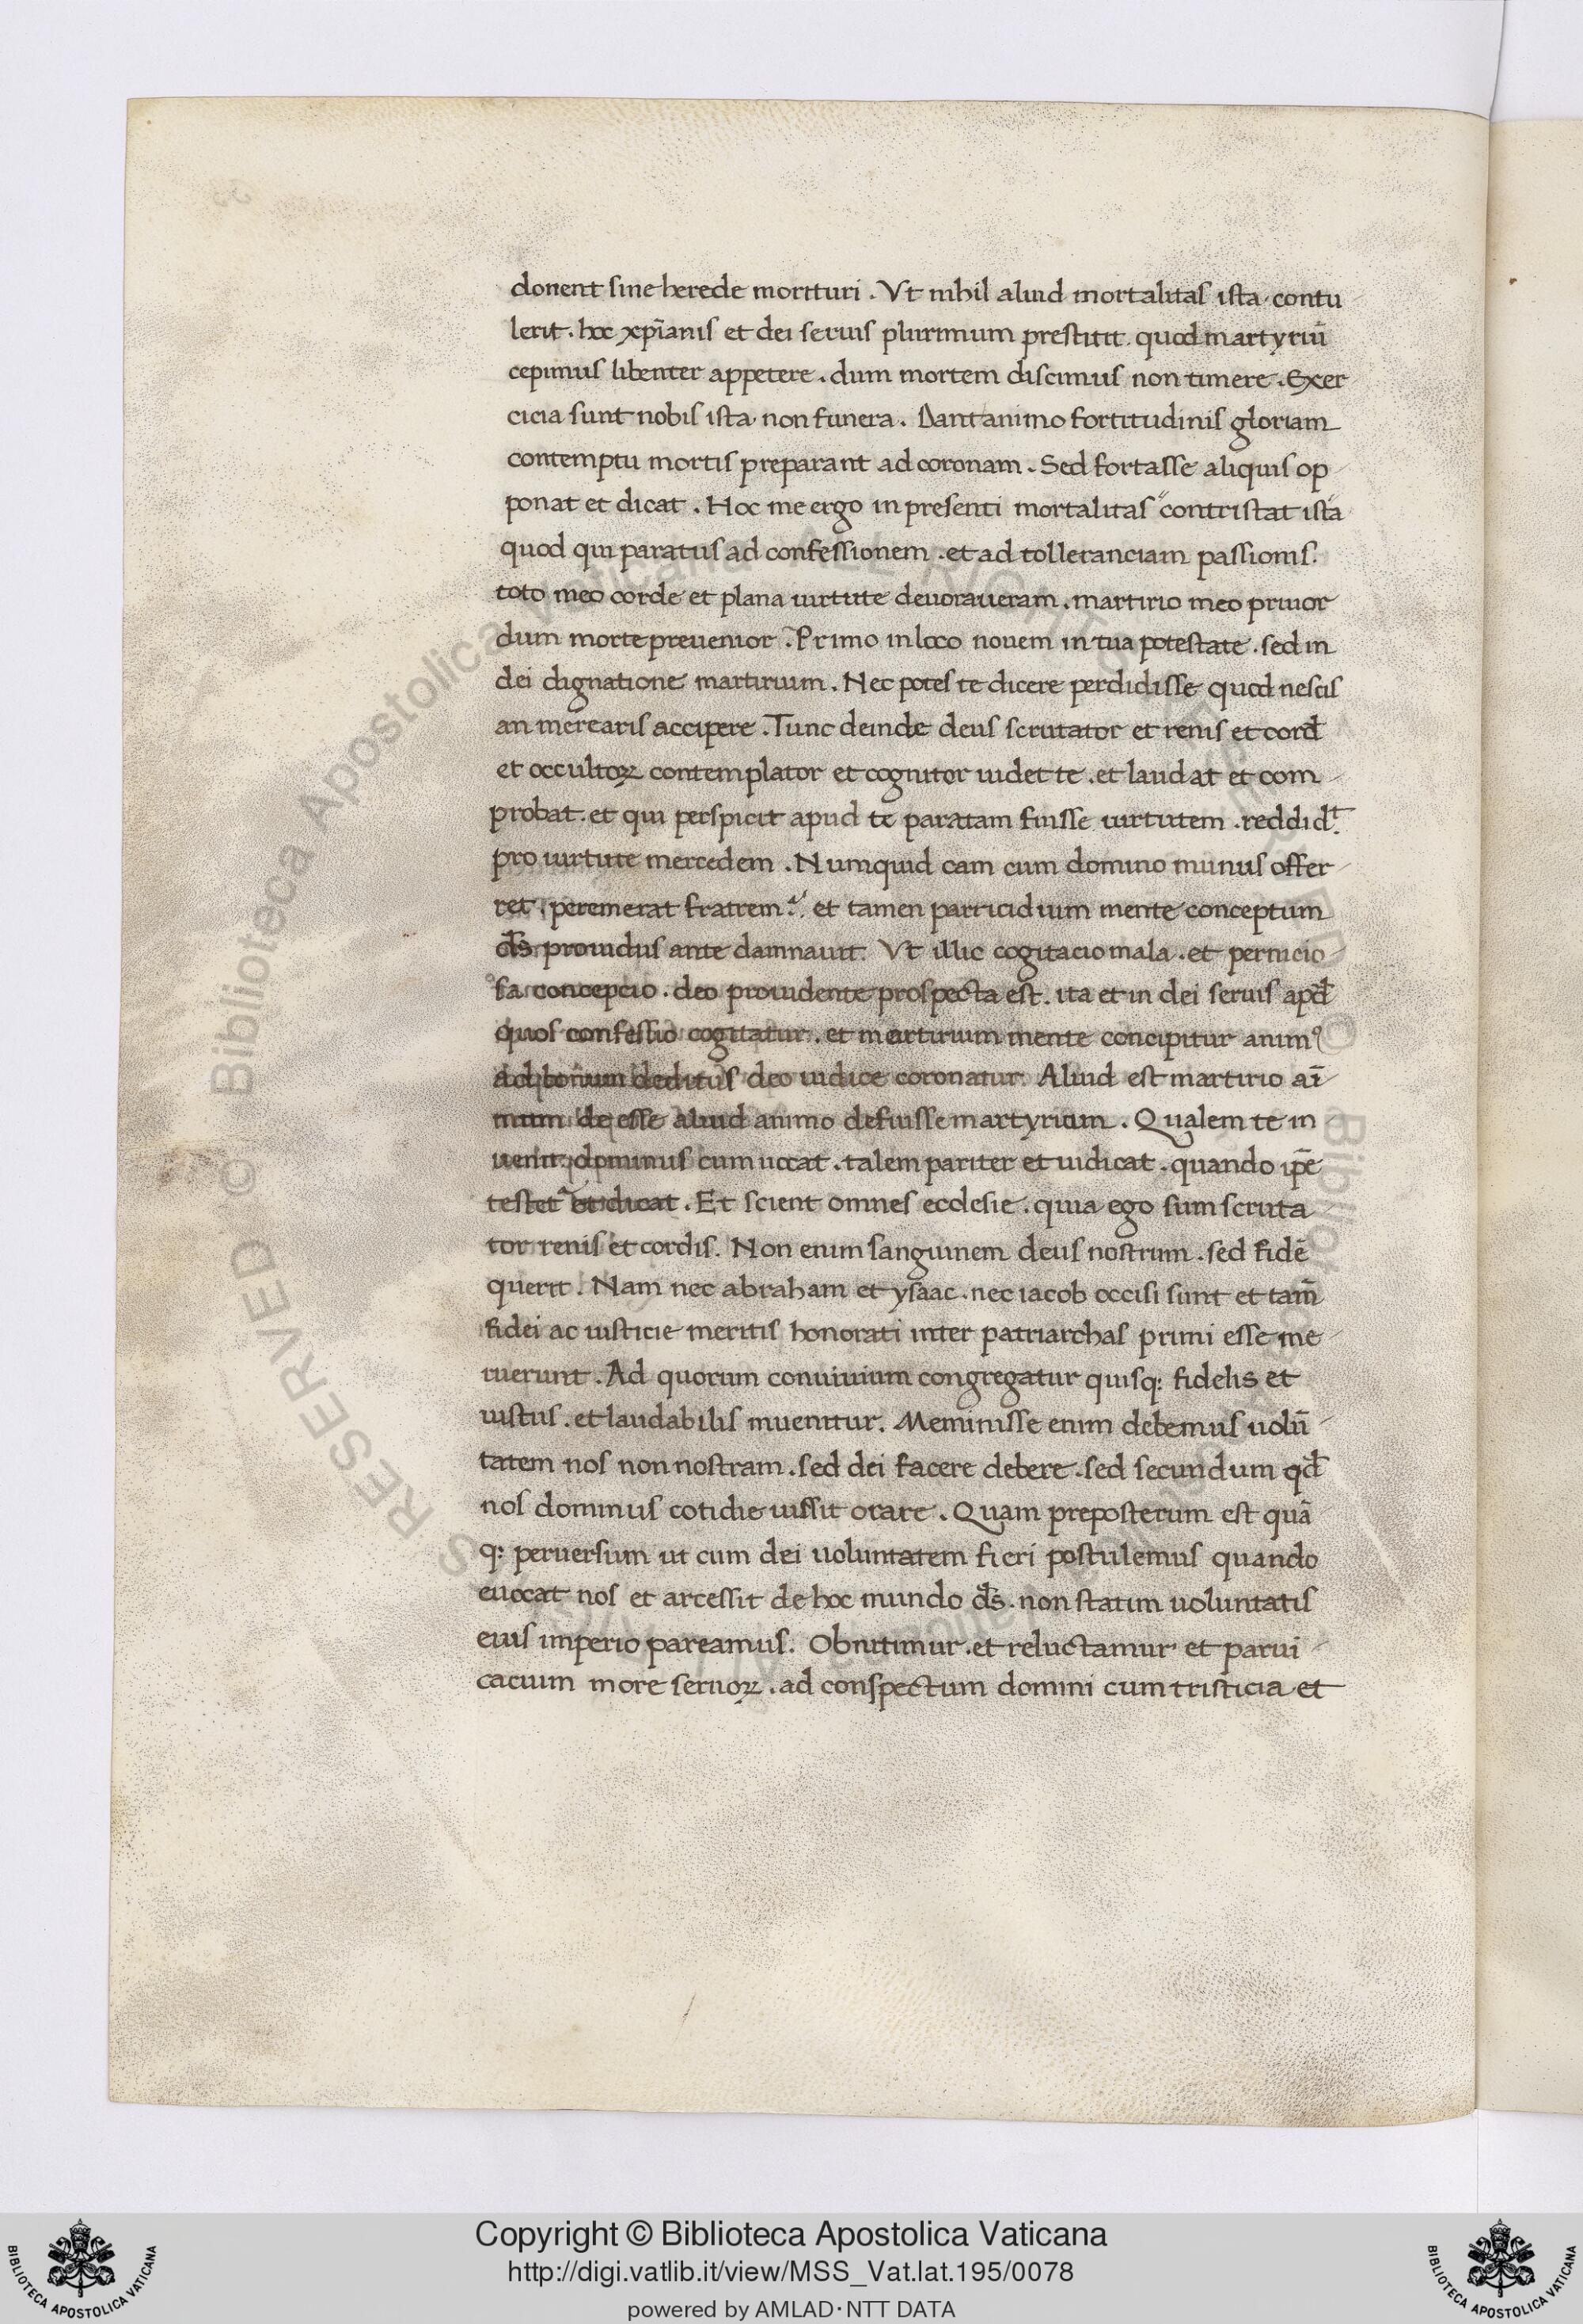 donent sine herede morituri . Vt nihil aliud mortalitas ista contu
lerit . hoc xp̄ianis et dei seruis plurimum prestitit . quod martyriū
cepimus libenter appetere . dum mortem discimus non timere . Exer
cicia sunt nobis ista non funera . Dant animo fortitudinis gloriam
contemptu mortis preparant ad coronam . Sed fortasse aliquis op
ponat et dicat . Hoc me ergo in presenti mortalitas contristat ista
quod qui paratus ad confessionem . et ad tolleranciam passionis .
toto meo corde et plana uirtute deuoraueram . martirio meo priuor
dum morte preuenior . Primo in loco nouem in tua potestate . sed in
dei dignatione martirium . Nec potes te dicere perdidisse quod nescis
an merearis accipere . Tunc deinde deus scrutator et renis et cord̄
et occultoꝝ contemplator et cognitor uidet te . et laudat et com
probat . et qui perspicit apud te paratam fuisse uirtutem . reddid̄t
pro uirtute mercedem . Numquid cam cum domino munus offer
ret . peremerat fratrem . et tamen parricidium mente conceptum
d̄s prouidus ante damnauit . Vt illic cogitacio mala . et pernicio
sa concepcio . deo prouidente prospecta est . ita et in dei seruis apd̄
quos confessio cogitatur . et martirium mente concipitur animꝰ
ad bonum deditus deo iudice coronatur . Aliud est martirio aī
mum de esse aliud animo defuisse martyrium . Qualem te in
uenit dominus cum uocat . talem pariter et iudicat . quando ip̄e
testet᷑ et dicat . Et scient omnes ecclesie . quia ego sum scruta
tor renis et cordis . Non enim sanguinem deus nostrum . sed fidē
querit . Nam nec abraham et ysaac . nec iacob occisi sunt et tam̄
fidei ac iusticie meritis honorati inter patriarchas primi esse me
ruerunt . Ad quorum conuiuium congregatur quisq: fidelis et
iustus . et laudabilis inuenitur . Meminisse enim debemus uolū
tatem nos non nostram . sed dei facere debere . sed secundum qd̄
nos dominus cotidie iussit orare . Quam preposterum est quā
q: peruersum ut cum dei uoluntatem fieri postulemus quando
euocat nos et arcessit de hoc mundo d̄s . non statim uoluntatis
eius imperio pareamus . Obnitimur . et reluctamur et parui
cacium more seruoꝝ . ad conspectum domini cum tristicia et
Copyright © Biblioteca Apostolica Vaticana
http://digi.vatlib.it/view/MSS_Vat.lat.195/0078
powered by AMLAD·NTT DATA
BIBLIOTECA APOSTOLICA VATICANA
BIBLIOTECA APOSTOLICA VATICANA